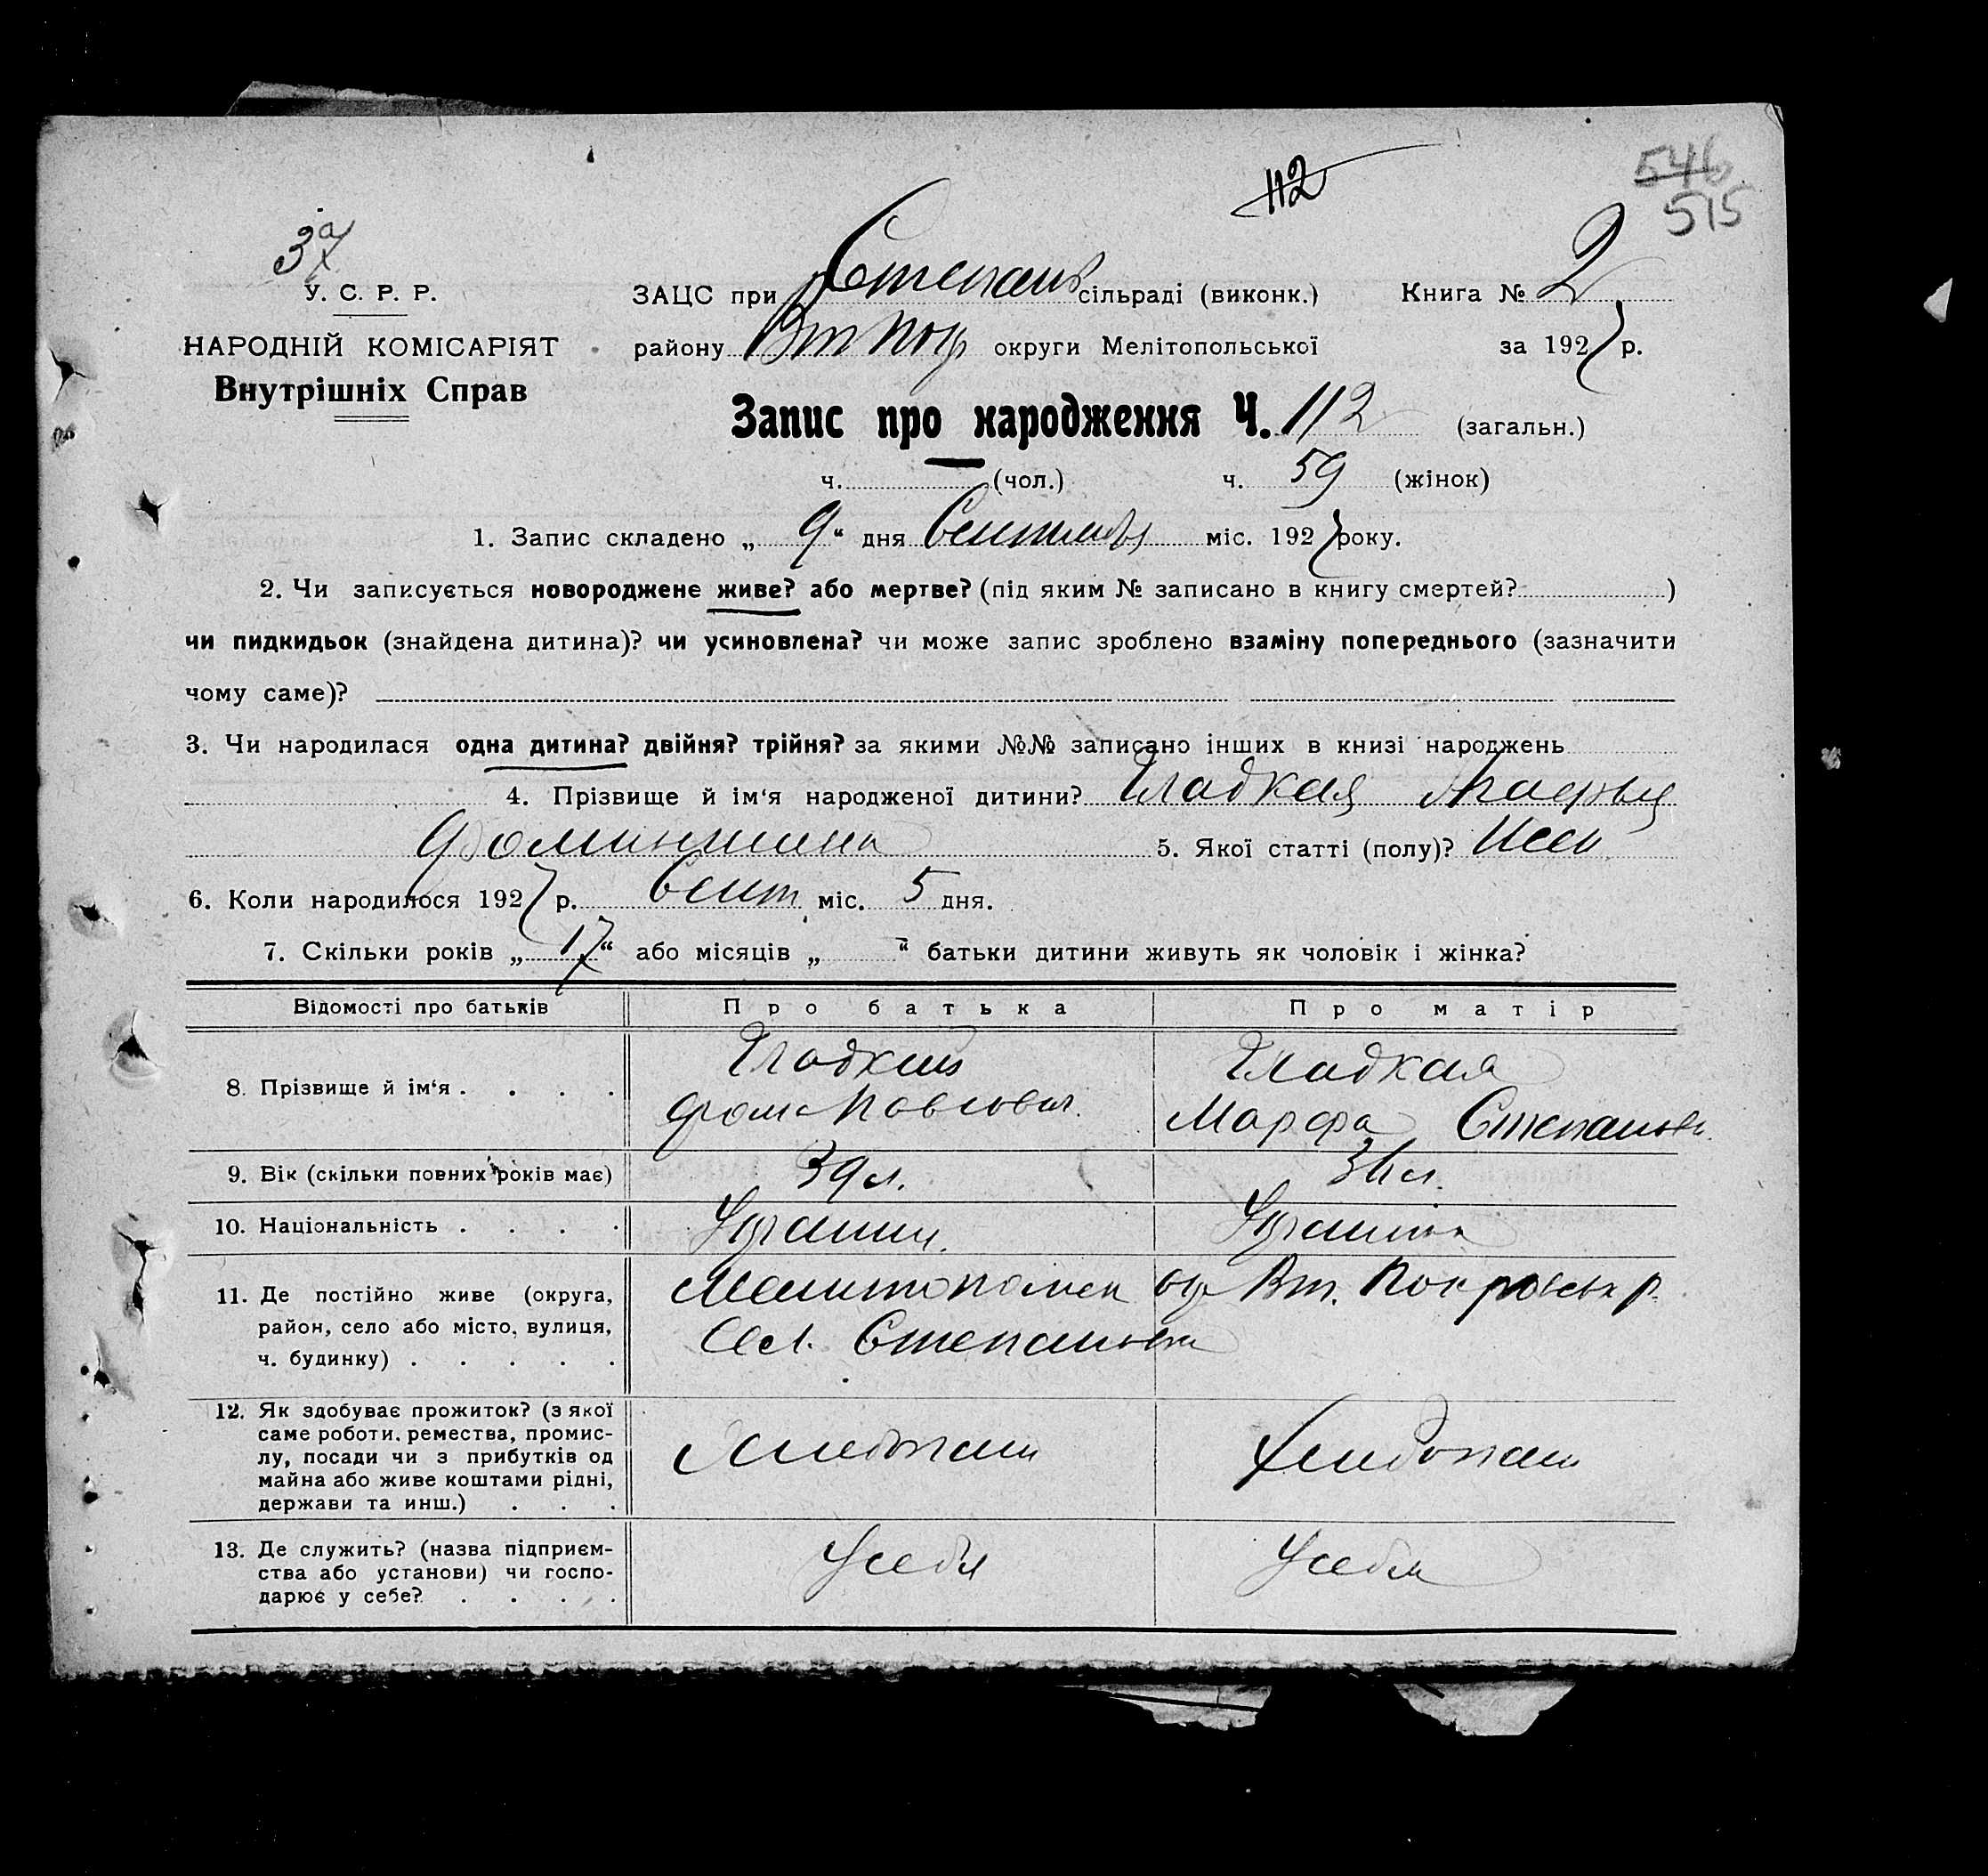 112
546
515
37
У. С. Р. Р.
НАРОДНІЙ КОМІСАРІЯТ
Внутрішніх Справ
ЗАЦС при Степанів сільраді (виконк.) Книга № 2
району Вт Покр округи Мелітопольської за 1927 р.
Запис про народження Ч. 112 (загальн.)
ч. (чол.) ч. 59 (жінок)
1. Запис складено „ 9 “ дня Сентября міс. 1927 року.
2. Чи записується новороджене живе? або мертве? (під яким № записано в книгу смертей? )
чи пидкидьок (знайдена дитина)? чи усиновлена? чи може запис зроблено взаміну попереднього (зазначити
чому саме)?
3. Чи народилася одна дитина? двійня? трійня? за якими №№ записано інших в книзі народжень
4. Прізвище й ім‘я народженої дитини? Гладкая
5. Якої статті (полу)?
6. Коли народилося 1927 р. Сент міс. 5 дня.
7. Скільки років „ 17 “ або місяців „ “ батьки дитини живуть як чоловік і жінка?
Відомості про батьків Про батька Про матір
8. Прізвище й ім‘я . . . . Гладкий Гладкая
Фома Павлович Марфа Степанов
9. Вік (скільки повних років має) 39 л. 36 л.
10. Національність . . . . Украин. Украинк
11. Де постійно живе (округа, район, село або місто, вулиця, ч. будинку) . . . . . Мелитопольск окр Вт. Покровск р.
Сел. Степановка
12. Як здобуває прожиток? (з якої саме роботи, ремества, промис-
лу, посади чи з прибутків од
майна або живе коштами рідні,
держави та инш.) . . . Хлебопаш Хлебопаш
13. Де служить? (назва підприєм-
ства або установи) чи госпо-
дарює у себе? . . . . У себя У себя